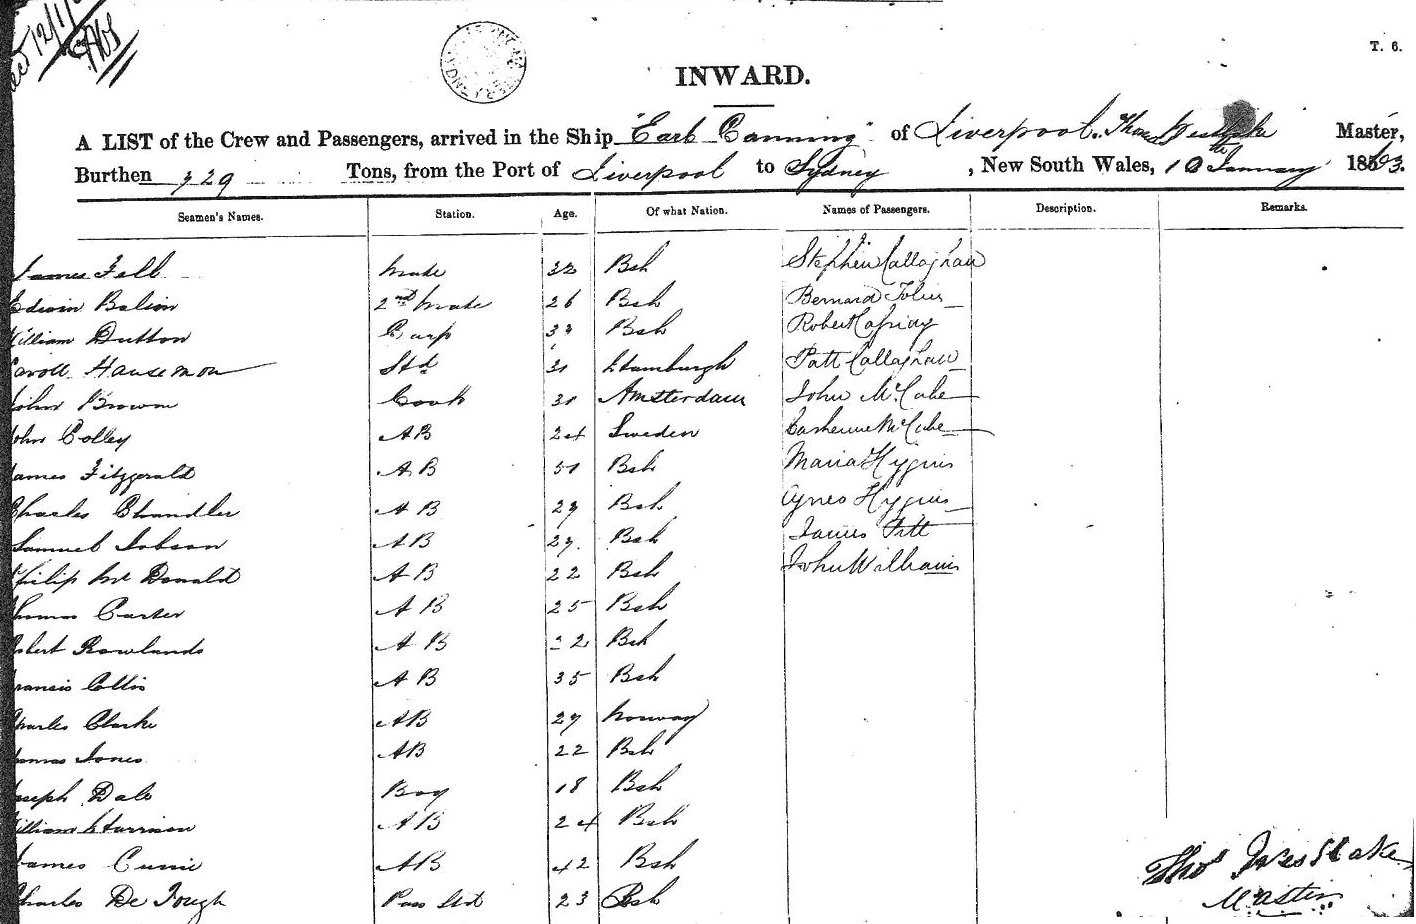 T. 6.
INWARD.
A LIST of the Crew and Passengers, arrived in the Ship "Earl Canning" of Liverpool. Thos Westlake Master,
Burthen 729 Tons, from the Port of Liverpool to Sydney, New South Wales, 10th January 1863.
Seamen's Names. Station. Age. Of what Nation. Names of Passengers. Description. Remarks.
James Fell Mate 32 Bsh Stephen Callaghan
Edwin 2nd Mate 26 Bsh Bernard
William Dutton Carp Bsh Robert
Hausemon Std 31 Hamburgh Patt Callaghan
John Brown Cook 31 Amsterdam John McCabe
John Colley AB 24 Sweden Catherine McCabe
James Fitzgerald AB 51 Bsh Maria Hygins
Charles Chandler AB 27 Bsh Agnes Hygins
Samuel Jobson AB 27 Bsh James Pitt
Philip McDonald AB 22 Bsh John Williams
Thomas Carter AB 25 Bsh
Robert Rowlands AB 22 Bsh
Francis Collis AB 35 Bsh
Charles Clarke AB 27 Norway
Jones AB 22 Bsh
Joseph Dale Boy 18 Bsh
William Harrison AB 24 Bsh
James Currie AB 42 Bsh
Charles De Pass Std 23 Bsh
Thos Westlake
Master